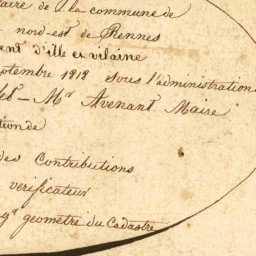 aire de la commune de
nord-est de Rennes
ent d'ille et vilaine
eptembre 1818 sous l'administration
Mr Avenant Maire
tion de
des Contributions
vérificateur
geometre du Cadastre